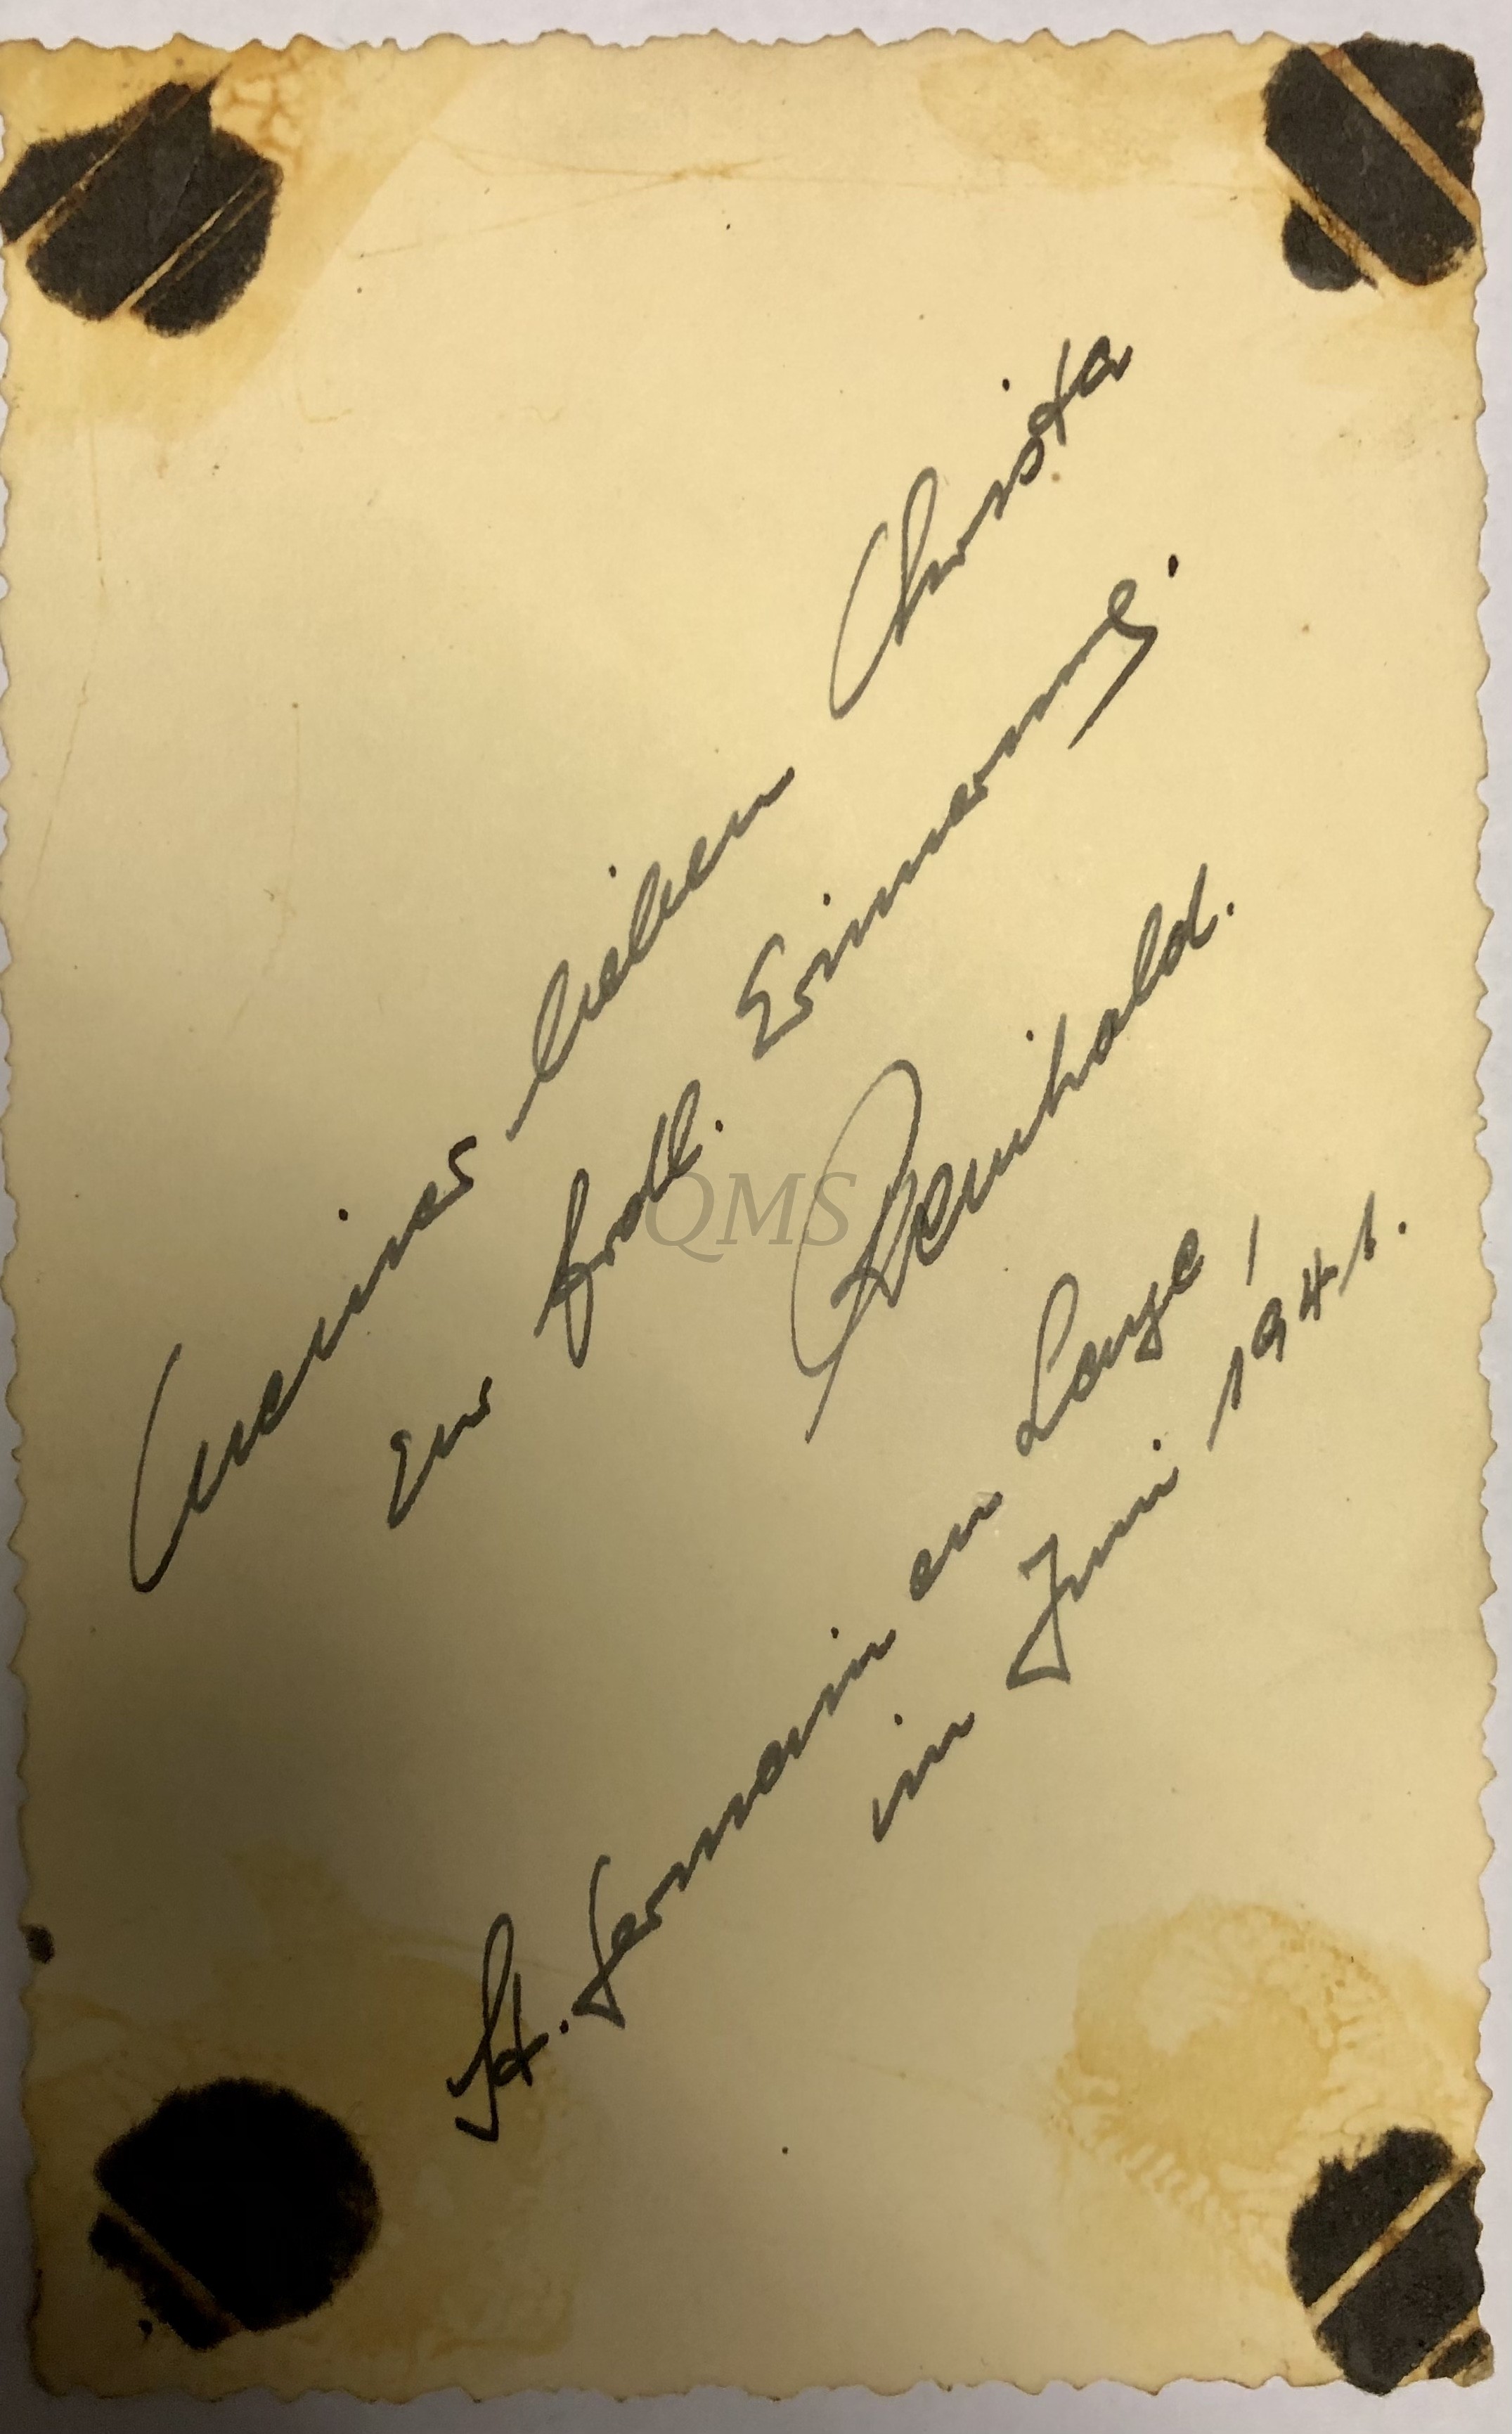 Meiner lieben Christa
zur frdll. Erinnerung.
Reinhold.
St. Germain en Laye!
im Juni 1941.
QMS